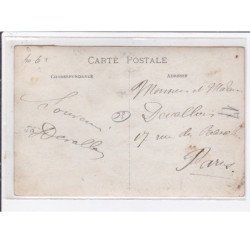 CARTE POSTALE
CORRESPONDANCE
ADRESSE
Souvenir
Devallois
Monsieur et Madame
Devallois
17 rue de
Paris